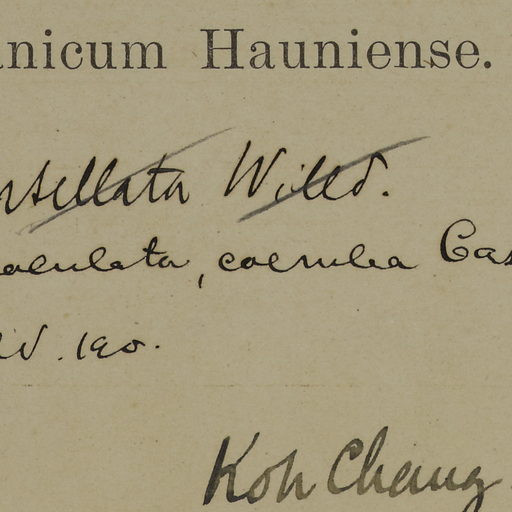 anicum Hauniense.
stellata Willd.
aculata, coerulea Cas
Koh Chang